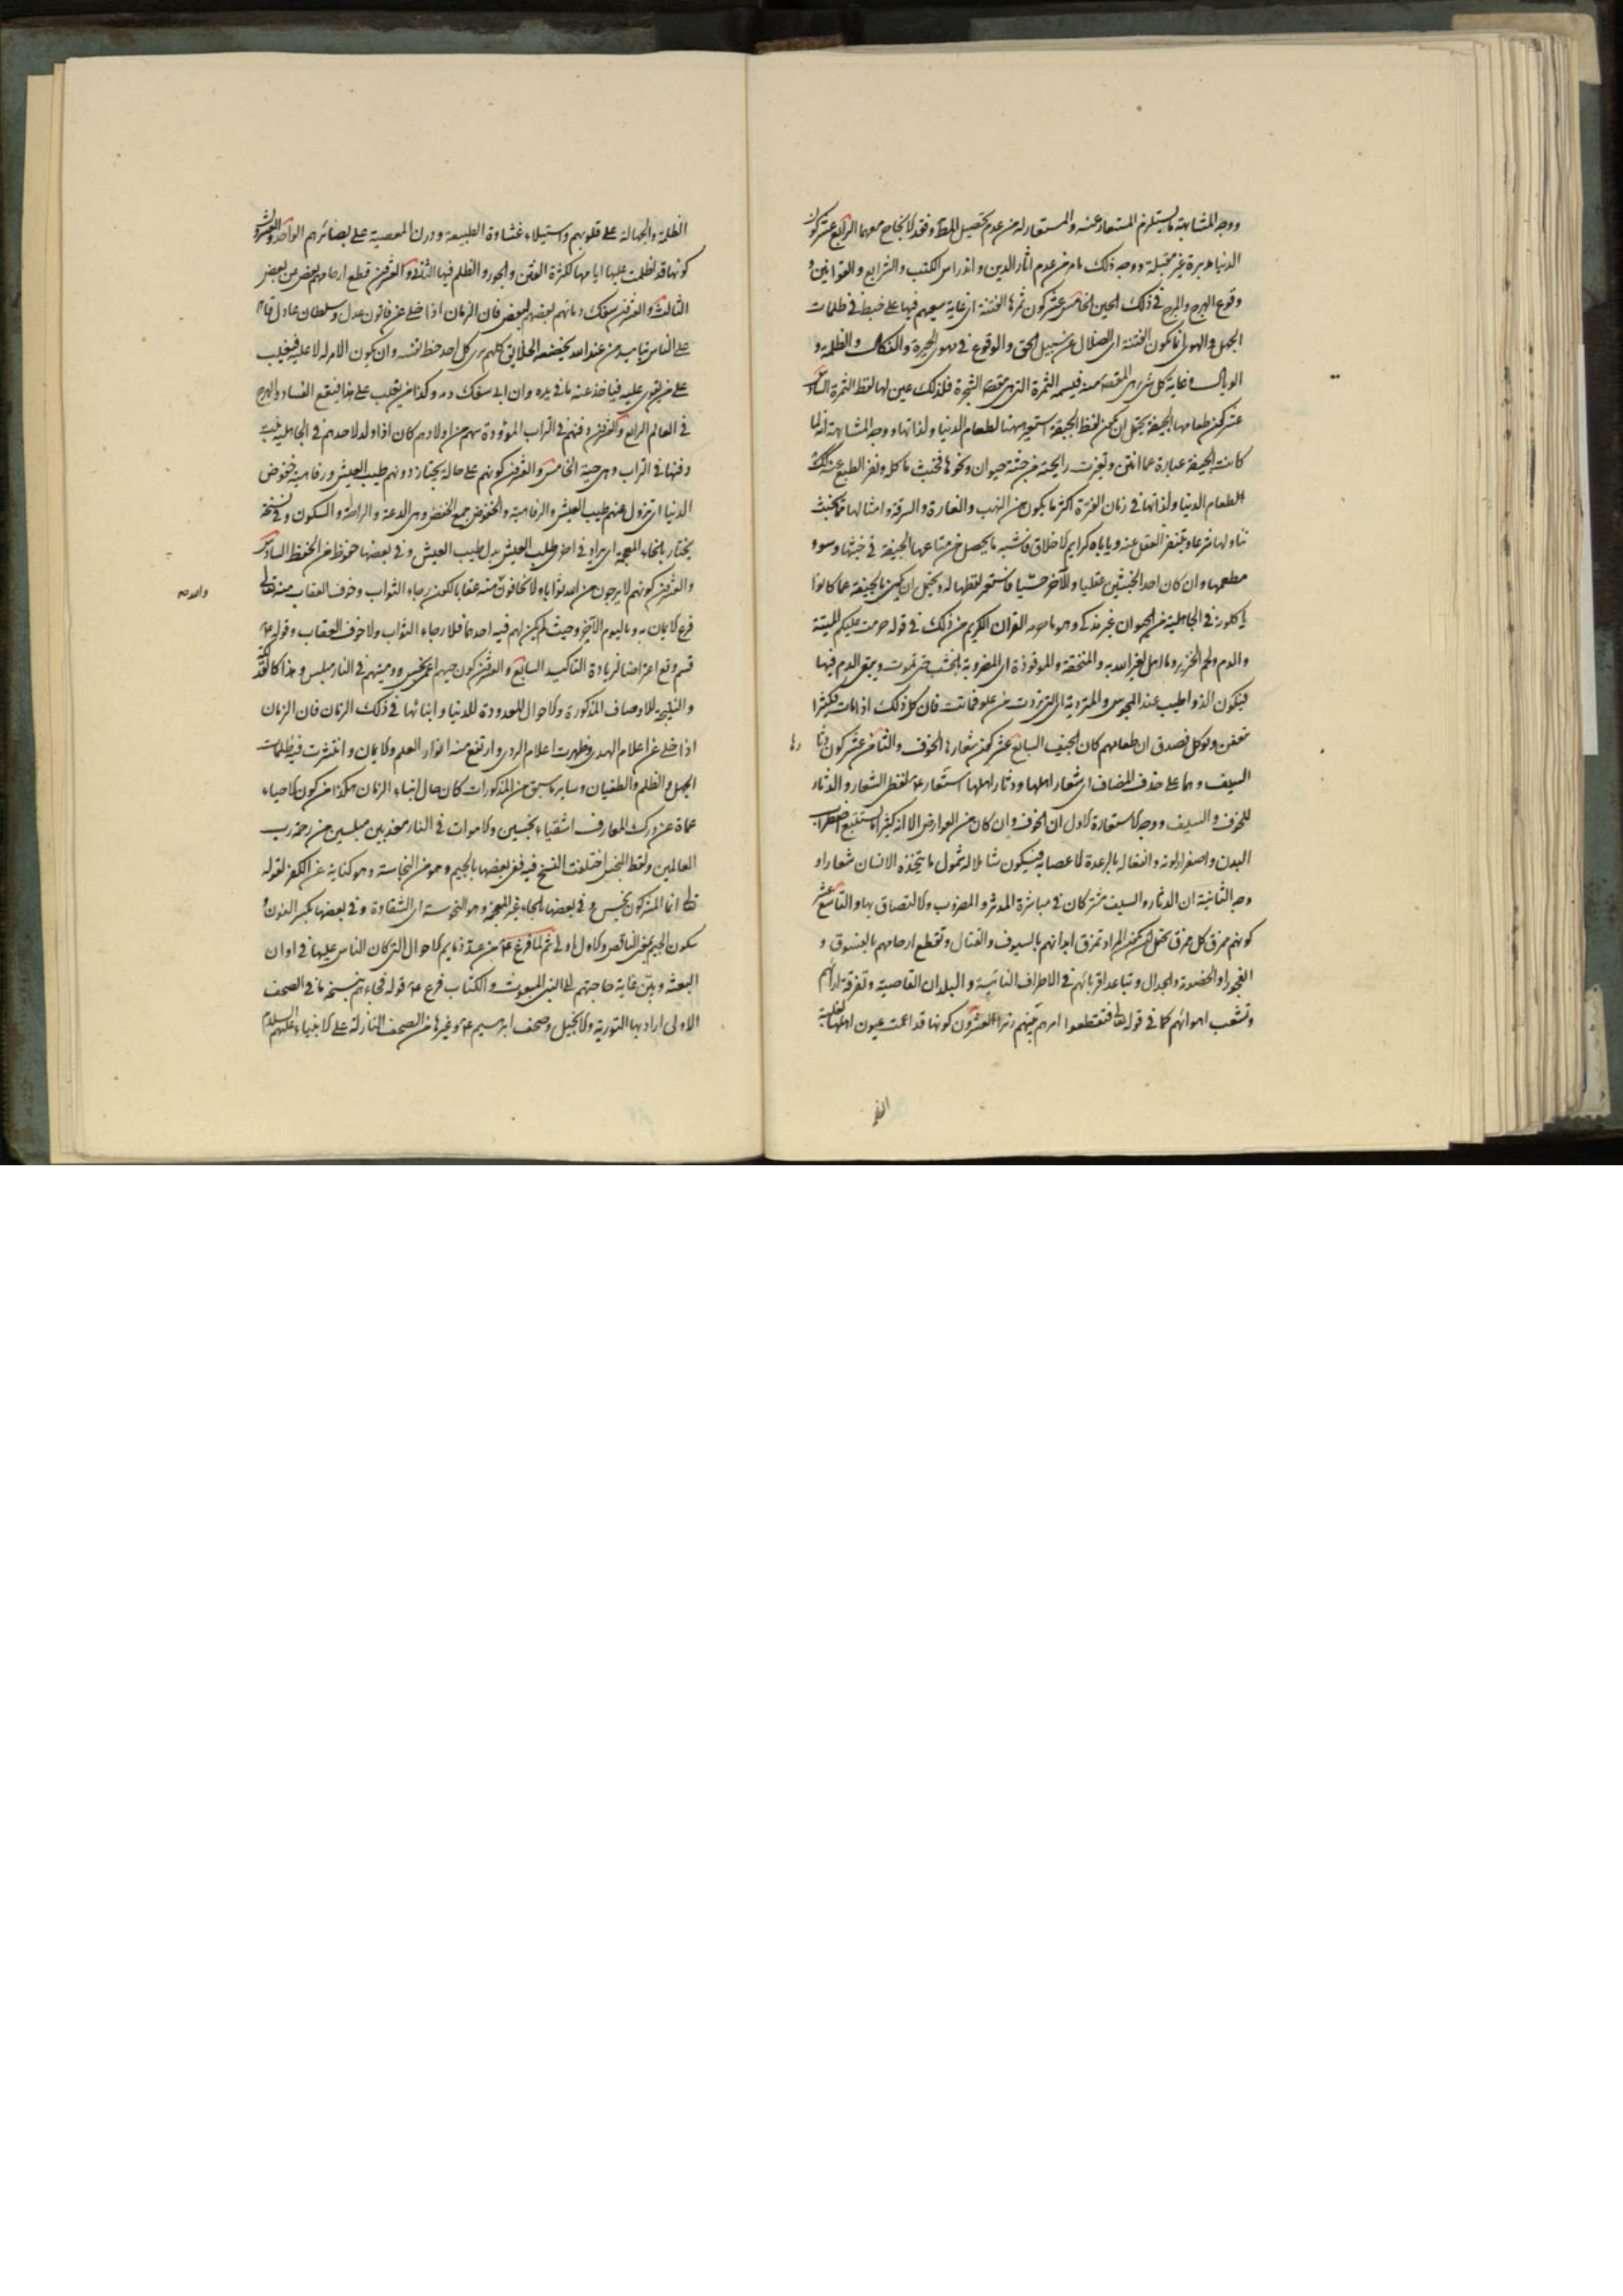 ووجه المشابهة ما يستلزم المستعار عنه والمستعار له من عدم تحصيل المط وفقد الانجاح معهما الرابع عشر كون
الدنيا مدبرة غير مقبلة ووجه ذلك ما مر من عدم اثار الدين واندراس الكتب والشرايع والقوانين و
وقوع الهرج والمرج في ذلك الحين الخامس عشر كون ثمرها الفتنة اى غاية سعيهم فيها على خبط في ظلمات
الجهل والهوى انما يكون الفتنة اى الضلال عن سبيل الحق والوقوع في مهوى الحيرة والنكال والظلمة و
الوبال وغاية كل شيء هي المقصودة منه فيشبه الثمرة التي هي مقصد الشجرة فلذلك عين لها لفظ الثمرة السادس
عشر كون طعامها الجيفة يحتمل ان يكون لفظ الجيفة استعير ههنا لطعام الدنيا ولذاتها ووجه المشابهة انه لما
كانت الجيفة عبارة عما انتن وتغيرت رايحته من جثة حيوان ونحوها فخبث ماكله ونفر الطبع عنه كذلك
طعام الدنيا ولذاتها في زمان الفترة اكثر ما يكون من النهب والغارة والسرقة وامثالها مما يخبث
تناولها شرعا ويتنفر العقل عنه ويأباه كرايم الاخلاق فاشبه ما يحصل من متاعها الجيفة في خبثها وسوء
مطعمها وان كان احد الخبثين عقليا والآخر حسّيا فاستعير لفظها له ويحتمل ان يكون بالجيفة عما كانوا
ياكلونه في الجاهلية من الحيوان غير مذكى وهو ما حرمه القران الكريم من ذلك في قوله حرمت عليكم الميتة
والدم ولحم الخنزير وما اهل لغير الله به والمنخنقة والموقوذة اى المضروبة بالخشب حتى تموت ويبقى الدم فيها
فيكون الذ واطيب عند المجوس والمتردية اى التي تردت من علو فماتت فان كل ذلك اذا مات فكثيرا
تعفن ويوكل فصدق ان طعامهم كان الجيف السابع عشر كون شعارها الخوف والثامن عشر كون دثا
رها
السيف وهما على حذف المضاف اى شعار اهلها ودثار اهلها استعار ع لفظى الشعار والدثار
للخوف والسيف ووجه الاستعارة الاول ان الخوف وان كان من العوارض الا انه كثيرا ما يستتبع اضطراب
البدن واصفرار لونه وانفعاله بالرعدة لاعصابه فيكون شاملا له شمول ما يتخذه الانسان شعارا و
وجه الثانية ان الدثار والسيف مشتركان في مباشرة المدثر والمضروب والالتصاق بها والتاسع عشر
كونهم ممزق كل ممزق يحتمل ان يكون المراد تمزق ابدانهم بالسيوف والقتال وتقطع ارحامهم بالفسوق و
الفجور او الخصومة والجدال وتباعد اقربائهم في الاطراف النائية والبلدان القاصية وتفرقة ارائهم
وتشعب اهوائهم كما في قوله تعالى فتقطعوا امرهم بينهم زبرا العشرون كونها قد اعمت عيون اهلها لغلبة
الظلمة والجهالة على قلوبهم واستيلاء غشاوة الطبيعة ودرن المعصية على بصائرهم الواحد والعشرون
كونها قد اظلمت عليها ايامها لكثرة الفتن والجور والظلم فيها الثاني والعشرون قطع ارحامهم بعض من بعض
الثالث والعشرون سفك دمائهم بعضهم لبعض فان الزمان اذا خلى عن قانون عدل وسلطان عادل قاهر
على الناس بتاييد من عند الله يخضعه الخلايق كلهم يرى كل احد حظ نفسه وان يكون الامر له لا عليه فيغلب
على من يقوى عليه فياخذ عنه ما في يده وان ابى سفك دمه وكذا من يغلب على هذا فيقع الفساد والهرج
في العالم الرابع والعشرون دفنهم في التراب الموؤودة بينهم من اولادهم كان اذا ولد لاحدهم في الجاهلية بنت
دفنها في التراب وهي حية الخامس والعشرون كونهم على حالة يجتاز دونهم طيب العيش ورفاهية خفوض
الدنيا اى تزول عنهم طيب العيش والرفاهية والخفوض جمع الخفض وهي الدعة والراحة والسكون وفي نسخة
يختار بالخاء المعجمة اى يراد في اخرى طلب العيش بدل طيب العيش وفي بعضها حفوظ من الحفظ السادس
والعشرون كونهم لا يرجون من الله ثوابا ولا يخافون منه عقابا لكون رجاء الثواب وخوف العقاب منه تعالى
والله منه
فرع الايمان به وباليوم الآخر وحيث لم يكن لهم فيه احدهما فلا رجاء الثواب ولا خوف العقاب وقوله ع
قسم وقع اعتراضا لزيادة التاكيد السابع والعشرون كون حيهم اعمى نجس وميتهم في النار مبلس وهذا كالفذلكة
والنتيجة للاوصاف المذكورة والاحوال المعدودة للدنيا وابنائها في ذلك الزمان فان الزمان
اذا خلى عن اعلام الهدى وظهرت اعلام الردى وارتفع منه انوار العلم والايمان وانتشرت فيه ظلمات
الجهل والظلم والطغيان وساير ما سبق من المذكورات كان حال ابناء الزمان هكذا من كون الاحياء
عماة عن درك المعارف اشقياء نجسين والاموات في النار معذبين مبلسين من رحمة رب
العالمين ولفظ النجس اختلفت النسخ فيه ففي بعضها بالجيم وهو من النجاسة وهو كناية عن الكفر لقوله
تعالى انما المشركون نجس وفي بعضها بالحاء غير المعجمة وهو النحوسة اى الشقاوة وفي بعضها بكسر النون و
سكون الجيم يعنى الناقص والاول اولى ثم لما فرغ ع من عدة ذمايم الاحوال التي كان الناس عليها في اوان
البعثة وبيّن غاية حاجتهم الى النبي المبعوث والكتاب فرع ع قوله فجاءهم بنسخة ما في الصحف
الاولى اراد بها التورية والانجيل وصحف ابرهيم ع وغيرها من الصحف النازلة على الانبياء عليهم السلام